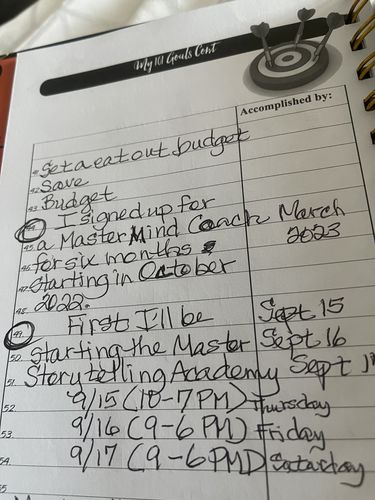 My 101 Goals Cont
Accomplished by:
41. Set a eat out budget
42. Save
43. Budget
44. I signed up for
45. a MasterMind Coach March
46. for six months 2023
47. starting in October
48. 2022.
49. First I'll be Sept 15
50. starting the Master Sept 16
51. Storytelling Academy Sept 17
52. 9/15 (10-7PM) Thursday
53. 9/16 (9-6PM) Friday
54. 9/17 (9-6PM) Saturday
55